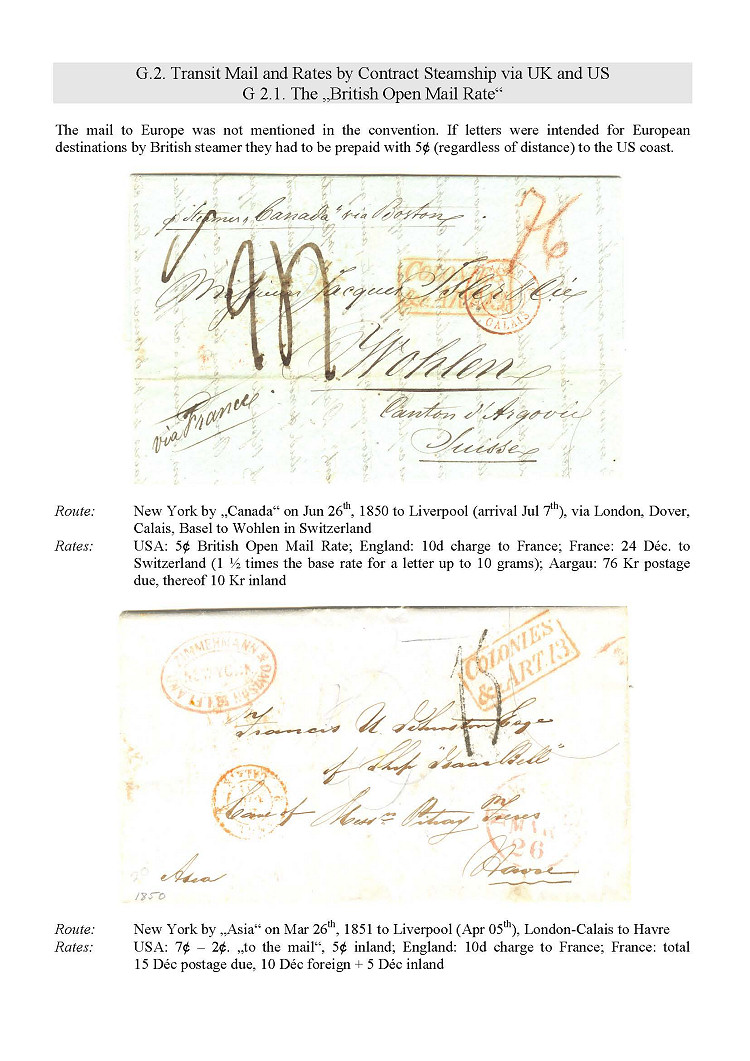 G.2. Transit Mail and Rates by Contract Steamship via UK and US
G 2.1. The „British Open Mail Rate“
The mail to Europe was not mentioned in the convention. If letters were intended for European
destinations by British steamer they had to be prepaid with 5¢ (regardless of distance) to the US coast.
"Canada" via Boston
76
COLONIES
CALAIS
Messieurs Jacques Isler & Cie
Wohlen
Canton d'Argovie
Suisse
via France
Route: New York by „Canada“ on Jun 26th, 1850 to Liverpool (arrival Jul 7th), via London, Dover,
Calais, Basel to Wohlen in Switzerland
Rates: USA: 5¢ British Open Mail Rate; England: 10d charge to France; France: 24 Déc. to
Switzerland (1 ½ times the base rate for a letter up to 10 grams); Aargau: 76 Kr postage
due, thereof 10 Kr inland
NEW YORK
COLONIES
& ART.13
15
Francis U Johnston Esqr
of Ship "Isaac Bell"
Care of Messrs
MAR
26
Havre
Asia
1850
Route: New York by „Asia“ on Mar 26th, 1851 to Liverpool (Apr 05th), London-Calais to Havre
Rates: USA: 7¢ – 2¢. „to the mail“, 5¢ inland; England: 10d charge to France; France: total
15 Déc postage due, 10 Déc foreign + 5 Déc inland